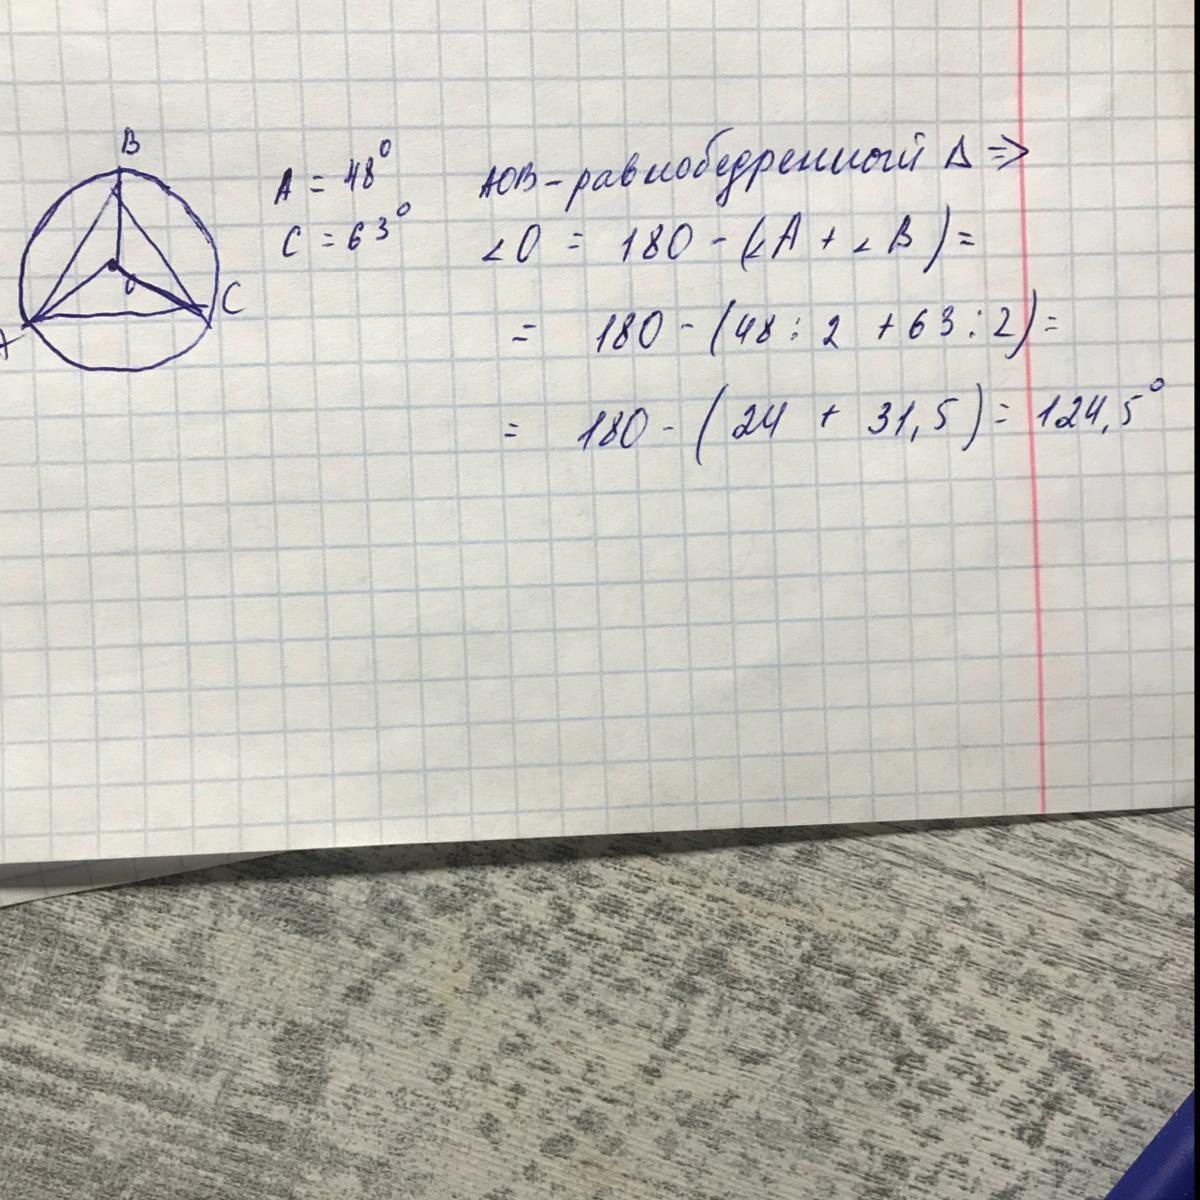 B
A = 48°
C = 63°
O
C
A
АОВ - равнобедренный Δ ⇒
∠O = 180 - (∠A + ∠B) =
= 180 - (48 : 2 + 63 : 2) =
= 180 - (24 + 31,5) = 124,5°